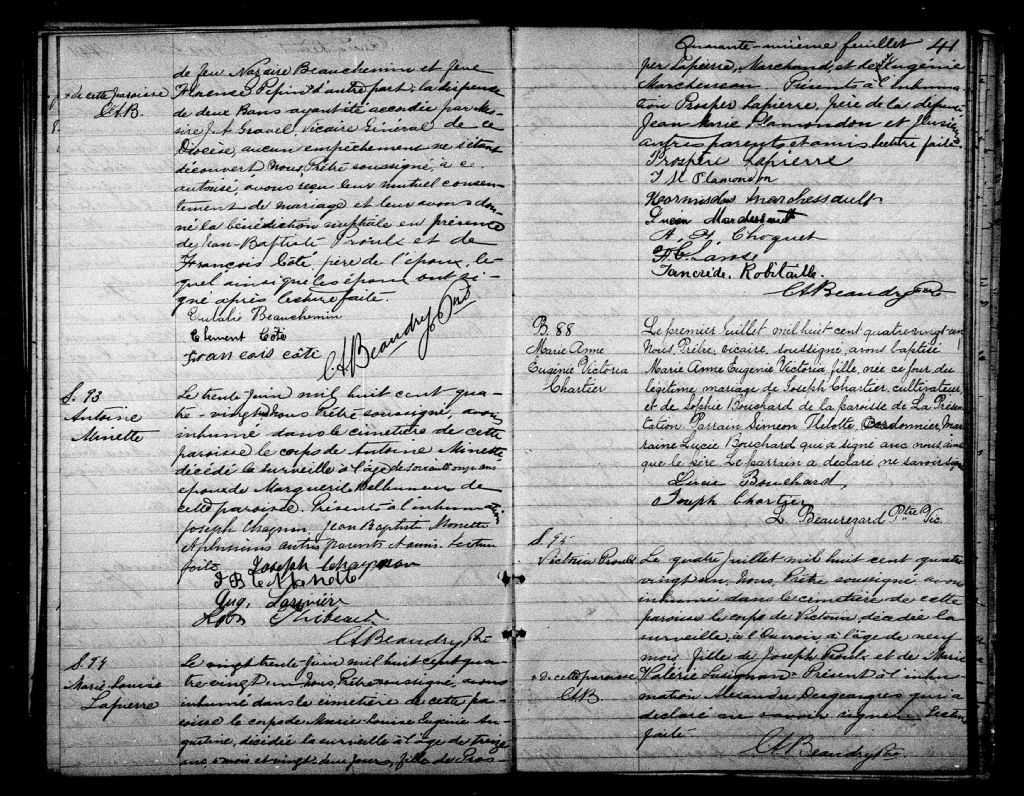 de feu Nazaire Beauchemin et feue
+ de cette paroisse
C.A.B.
Florence Pepin d'autre part, la dispense
de deux Bans ayant été accordée par Mes-
sire J. A. Gravel, Vicaire Général de ce
Diocèse, aucun empêchement ne s'étant
découvert, Nous, Prêtre soussigné, à ce
autorisé, avons reçu leur mutuel consen-
tement de mariage et leur avons don-
né la bénédiction nuptiale en présence
de Jean-Baptiste Proulx et de
François Côté, père de l'époux, le-
quel ainsi que les époux ont si-
gné après lecture faite.
Eulalie Beauchemin
Clement Côté
francois côté
C A Beaudry Ptre
S. 93
Antoine
Minette
Le trente Juin mil huit cent qua-
tre-vingt un Nous Prêtre soussigné, avons
inhumé dans le cimetière de cette
paroisse le corps de Antoine Minette
décédé la surveille à l'âge de soixante onze ans
époux de Marguerite de
cette paroisse. Présent à l'inhumation
Joseph Chagnon, Jean Baptiste Monette
et plusieurs autres parents et amis. Lecture
faite. Joseph Chagnon
J B te Minette
Aug. Larivière
C A Beaudry Ptre
S. 94
Marie-Louise
Lapierre
Le vingt trente-Juin mil huit cent qua-
tre vingt un Nous Prêtre soussigné, avons
inhumé dans le cimetière de cette pa-
roisse le corps de Marie Louise Eugénie Au-
gustine, décédée la surveille à l'âge de treize
ans mois et vingt-deux jours, fille de Pros-
Quarante-unième feuillet 41
per Lapierre, Marchand, et de Eugénie
Marchesseau. Présents à l'inhuma-
tion Prosper Lapierre, père de la défunte
Jean Marie Plamondon et plusieurs
autres parents et amis. Lecture faite.
Prospère Lapierre
J M Plamondon
Hormisdas Marchessault
Lucien Marchessault
A. P. Choquet
Tancrède Robitaille.
C A Beaudry Ptre
B. 88
Marie Anne
Eugénie Victoria
Chartier
Le premier Juillet mil huit cent quatre-vingt-un
Nous, Prêtre, vicaire, soussigné, avons baptisé
Marie Anne Eugenie Victoria fille, née ce jour du
légitime mariage de Joseph Chartier, cultivateur,
et de Sophie Bouchard de la paroisse de La Présen-
tation. Parrain Simeon Cordonnier, Mar-
raine Lucie Bouchard qui a signé avec nous ainsi
que le père. Le parrain a déclaré ne savoir signer
Lucie Bouchard,
Joseph Chartier
L. Beauregard Ptre Vic.
S. 95
Victoria Proulx
Le quatre Juillet mil huit cent quatre
vingt un, Nous, Prêtre soussigné avons
inhumé dans le cimetière de cette
paroisse le corps de Victoria, décédée la
surveille, à l'Ouvroir à l'âge de neuf
mois, fille de Joseph Proulx et de Marie
+ de cette paroisse
C.A.B
Valérie Lusignan + Présent à l'inhu-
mation Desgranges qui a
déclaré ne savoir signer. Lecture
faite
C A Beaudry Ptre